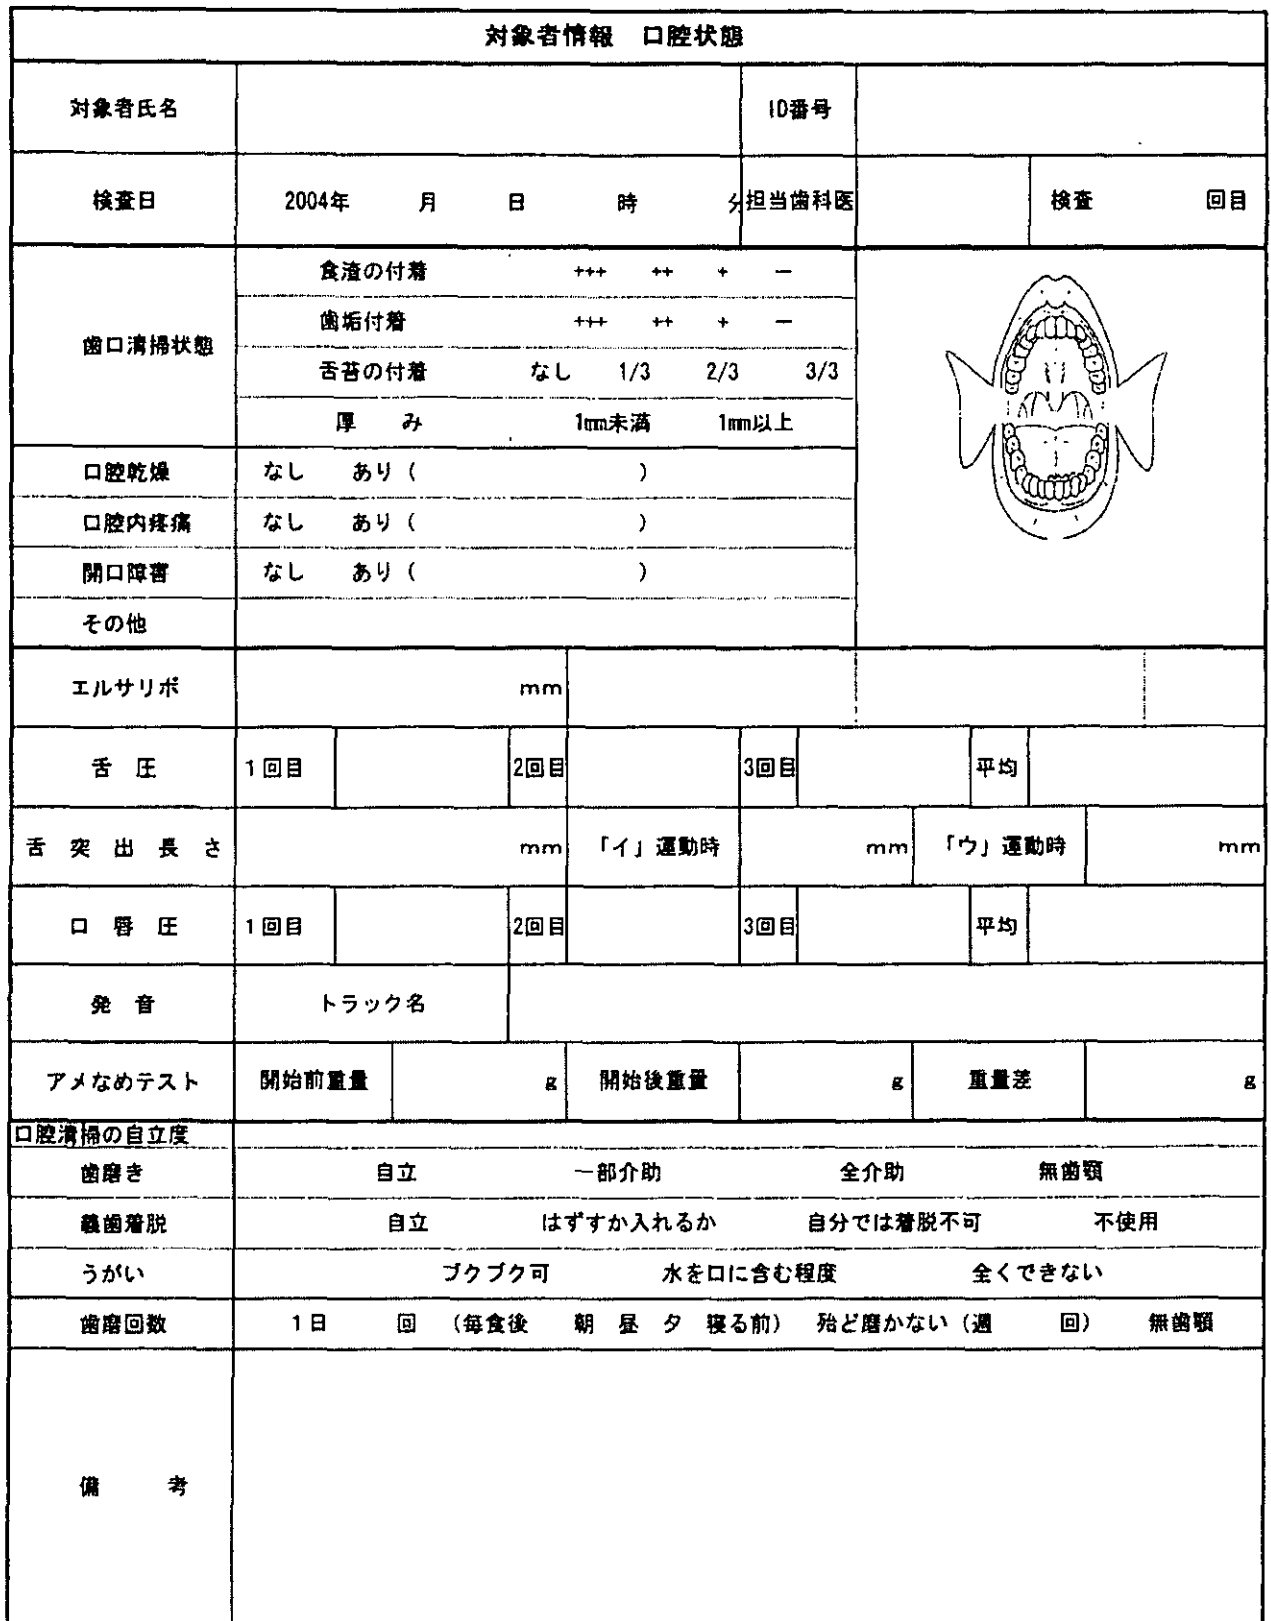 対象者情報 口腔状態
対象者氏名 ID番号
検査日 2004年 月 日 時 分 担当歯科医 検査 回目
歯口清掃状態
食渣の付着 +++ ++ + −
歯垢付着 +++ ++ + −
舌苔の付着 なし 1/3 2/3 3/3
厚 み 1mm未満 1mm以上
口腔乾燥 なし あり ( )
口腔内疼痛 なし あり ( )
開口障害 なし あり ( )
その他
エルサリボ mm
舌 圧 1回目 2回目 3回目 平均
舌 突 出 長 さ mm 「イ」運動時 mm 「ウ」運動時 mm
口 唇 圧 1回目 2回目 3回目 平均
発 音 トラック名
アメなめテスト 開始前重量 g 開始後重量 g 重量差 g
口腔清掃の自立度
歯磨き 自立 一部介助 全介助 無歯顎
義歯着脱 自立 はずすか入れるか 自分では着脱不可 不使用
うがい ブクブク可 水を口に含む程度 全くできない
歯磨回数 1日 回 (毎食後 朝 昼 夕 寝る前)殆ど磨かない (週 回) 無歯顎
備 考